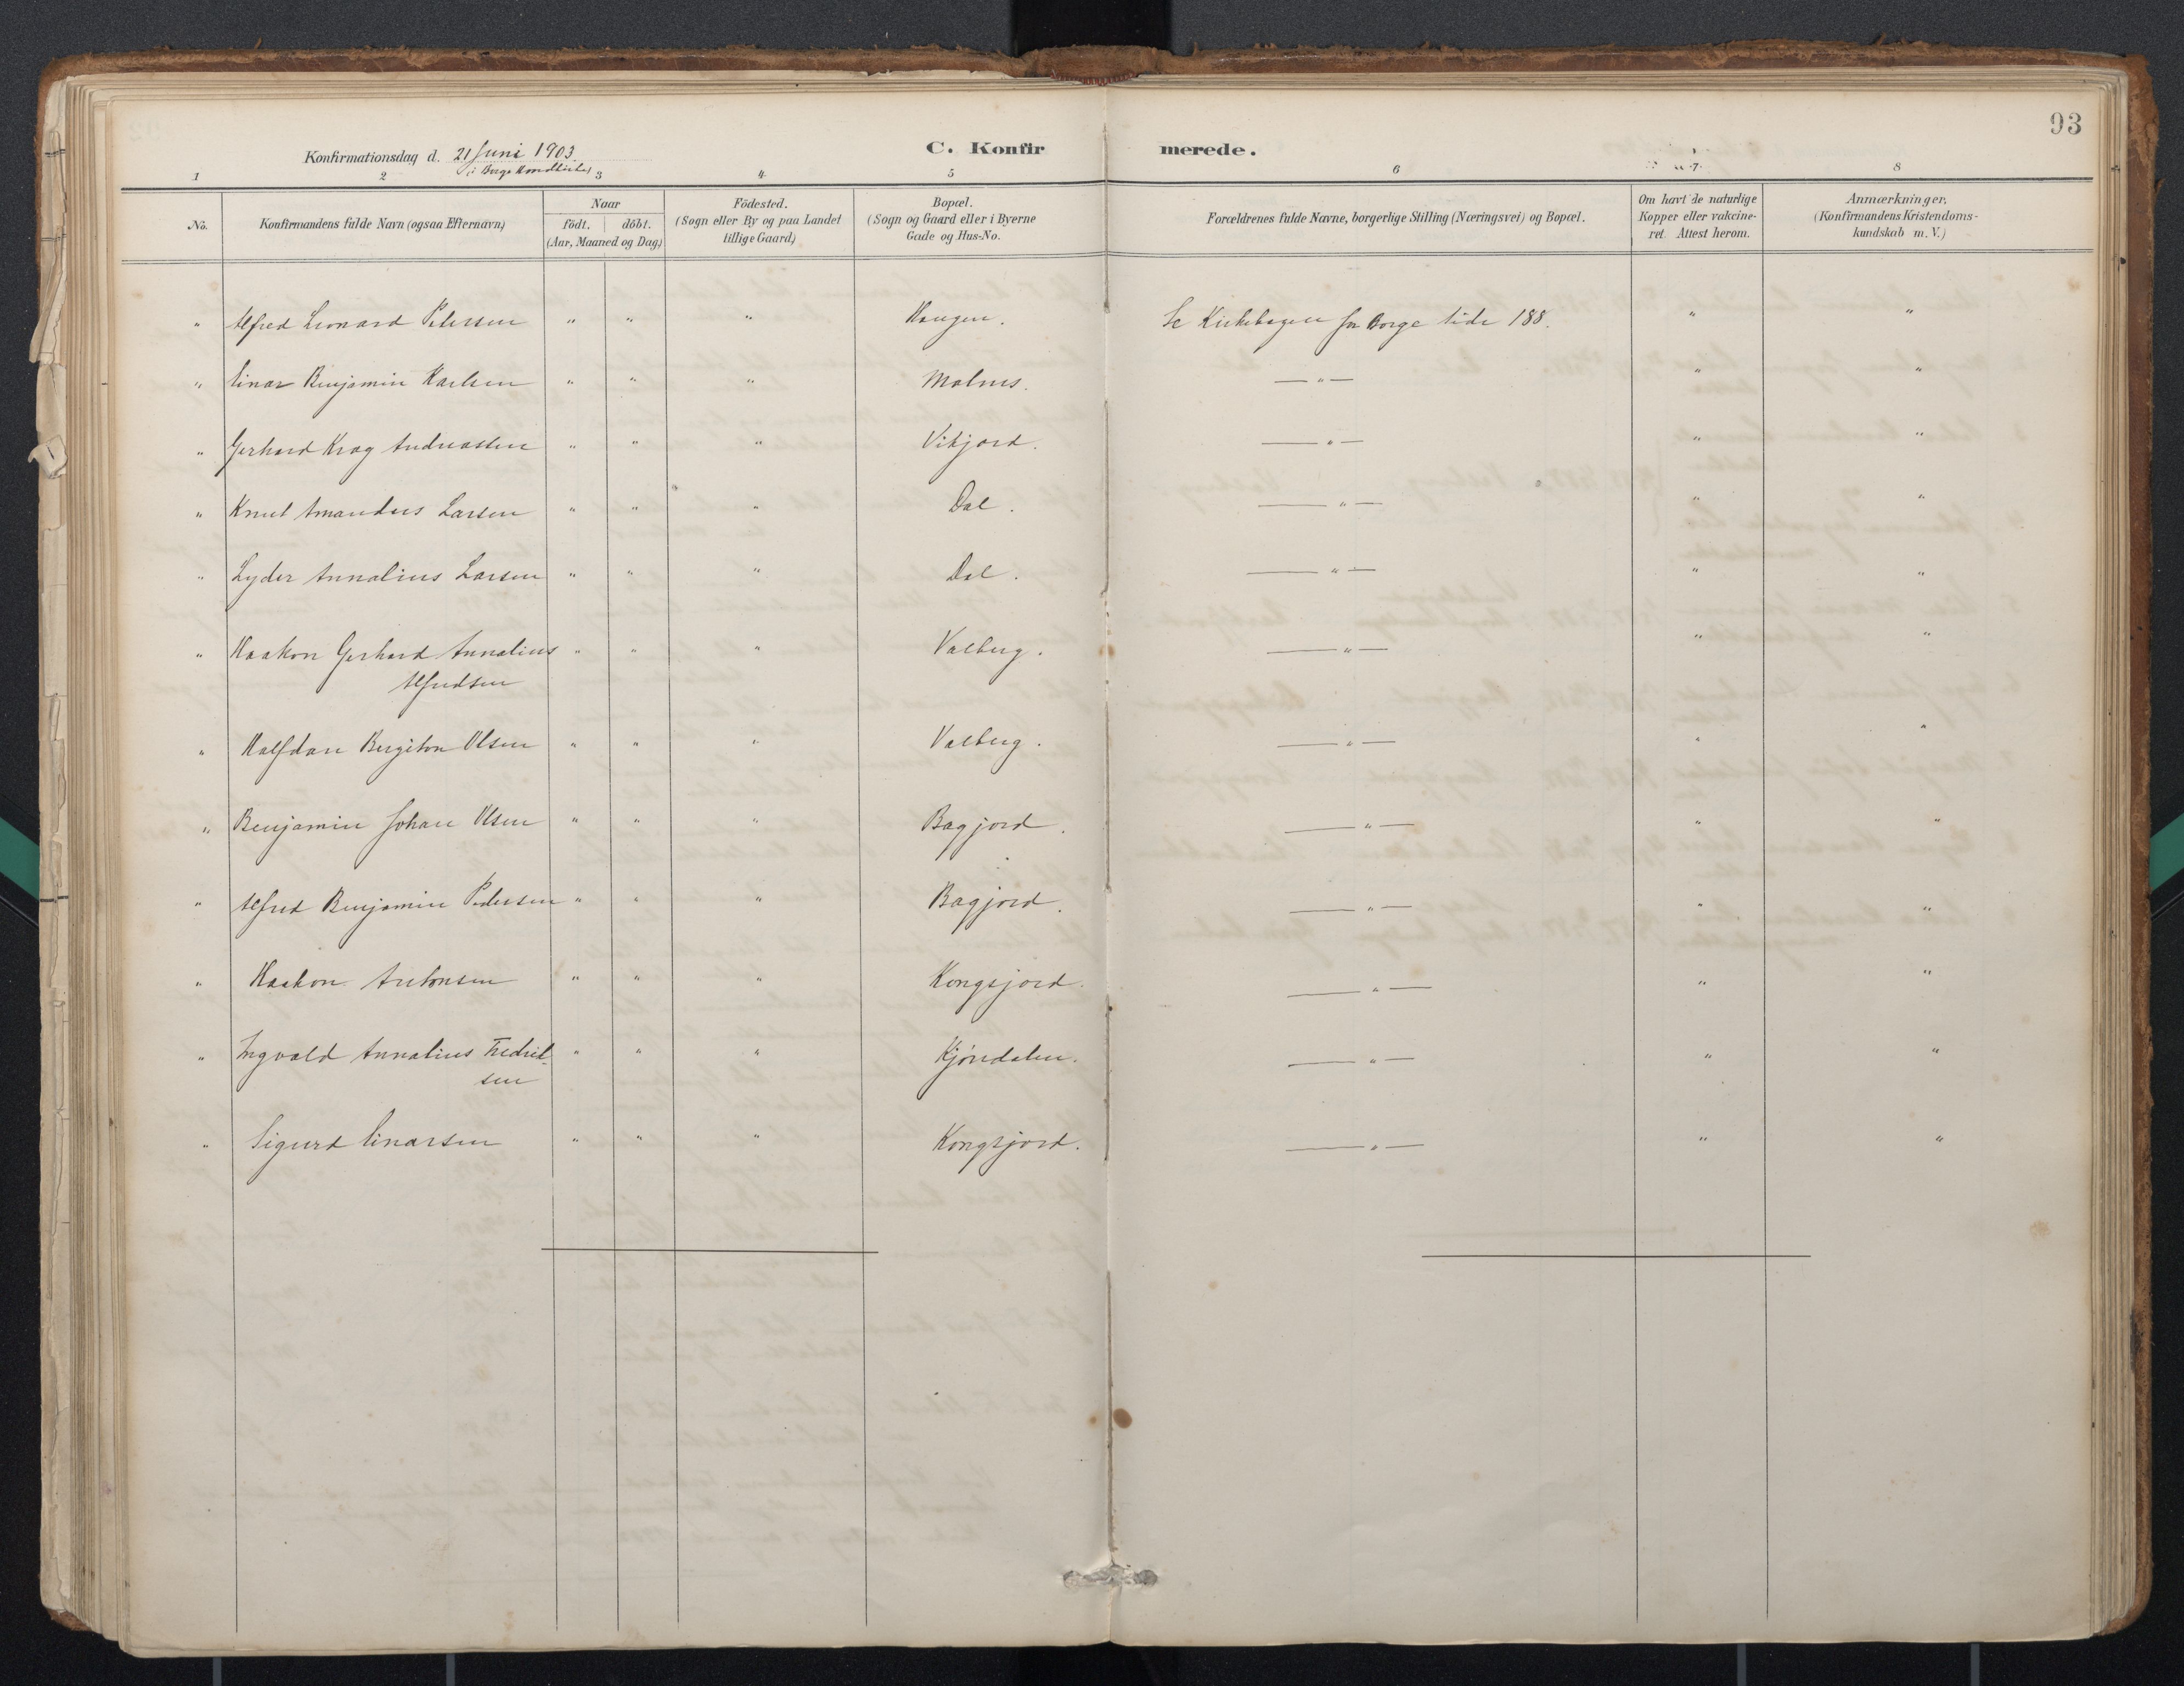 93
Konfirmationsdag d. 21 Juni 1903
C. Konfirmerede.
(i Borge Hovedkirke)
1 2 3 4 5 6 7 8
No. Konfirmandens fulde Navn (ogsaa Efternavn) Naar födt. döbt. (Aar, Maaned og Dag.) Födested. (Sogn eller By og paa Landet tillige Gaard.) Bopæl. (Sogn og Gaard eller i Byerne Gade og Hus-No. Forældrenes fulde Navne, borgerlige Stilling (Næringsvei) og Bopæl. Om havt de naturlige Kopper eller vakcineret. Attest herom. Anmærkninger. (Konfirmandens Kristendomskundskab m. V.)
" Alfred Leonard Petersen " " " Haugen. Se Kirkebogen for Borge side 188. " "
" Einar Benjamin Karlsen " " " Molnes. — " — " "
" Gerhard Krog Andreassen " " " Vikjord. — " — " "
" Knut Amandus Larsen " " " Dal. — " — " "
" Lyder Annalius Larsen " " " Dal. — " — " "
" Haakon Gerhard Annalius " " " Valberg. — " — " "
Alfredsen
" Halfdan Bergiton Olsen " " " Valberg. — " — " "
" Benjamin Johan Olsen " " " Bagjord. — " — " "
" Alfred Benjamin Pedersen " " " Bagjord. — " — " "
" Haakon Antonsen " " " Kongsjord. — " — " "
" Ingvald Annalius Fredrik- " " " Kjöndalen. — " — " "
sen
" Sigurd Einarsen " " " Kongsjord. — " — " "